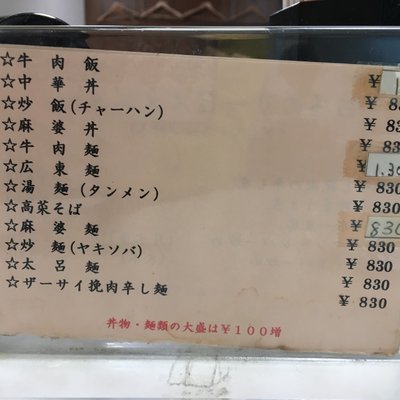 ☆牛肉飯 ¥
☆中華丼 ¥ 830
☆炒飯(チャーハン) ¥ 830
☆麻婆丼 ¥ 830
☆牛肉麺 ¥
☆広東麺 ¥ 830
☆湯麺(タンメン) ¥ 830
☆高菜そば ¥ 830
☆麻婆麺 ¥ 830
☆炒麺(ヤキソバ) ¥ 830
☆太呂麺 ¥ 830
☆ザーサイ挽肉辛し麺 ¥ 830
丼物・麺類の大盛は¥100増